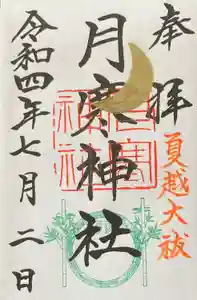 奉拝
夏越大祓
月寒神社
令和四年七月二日